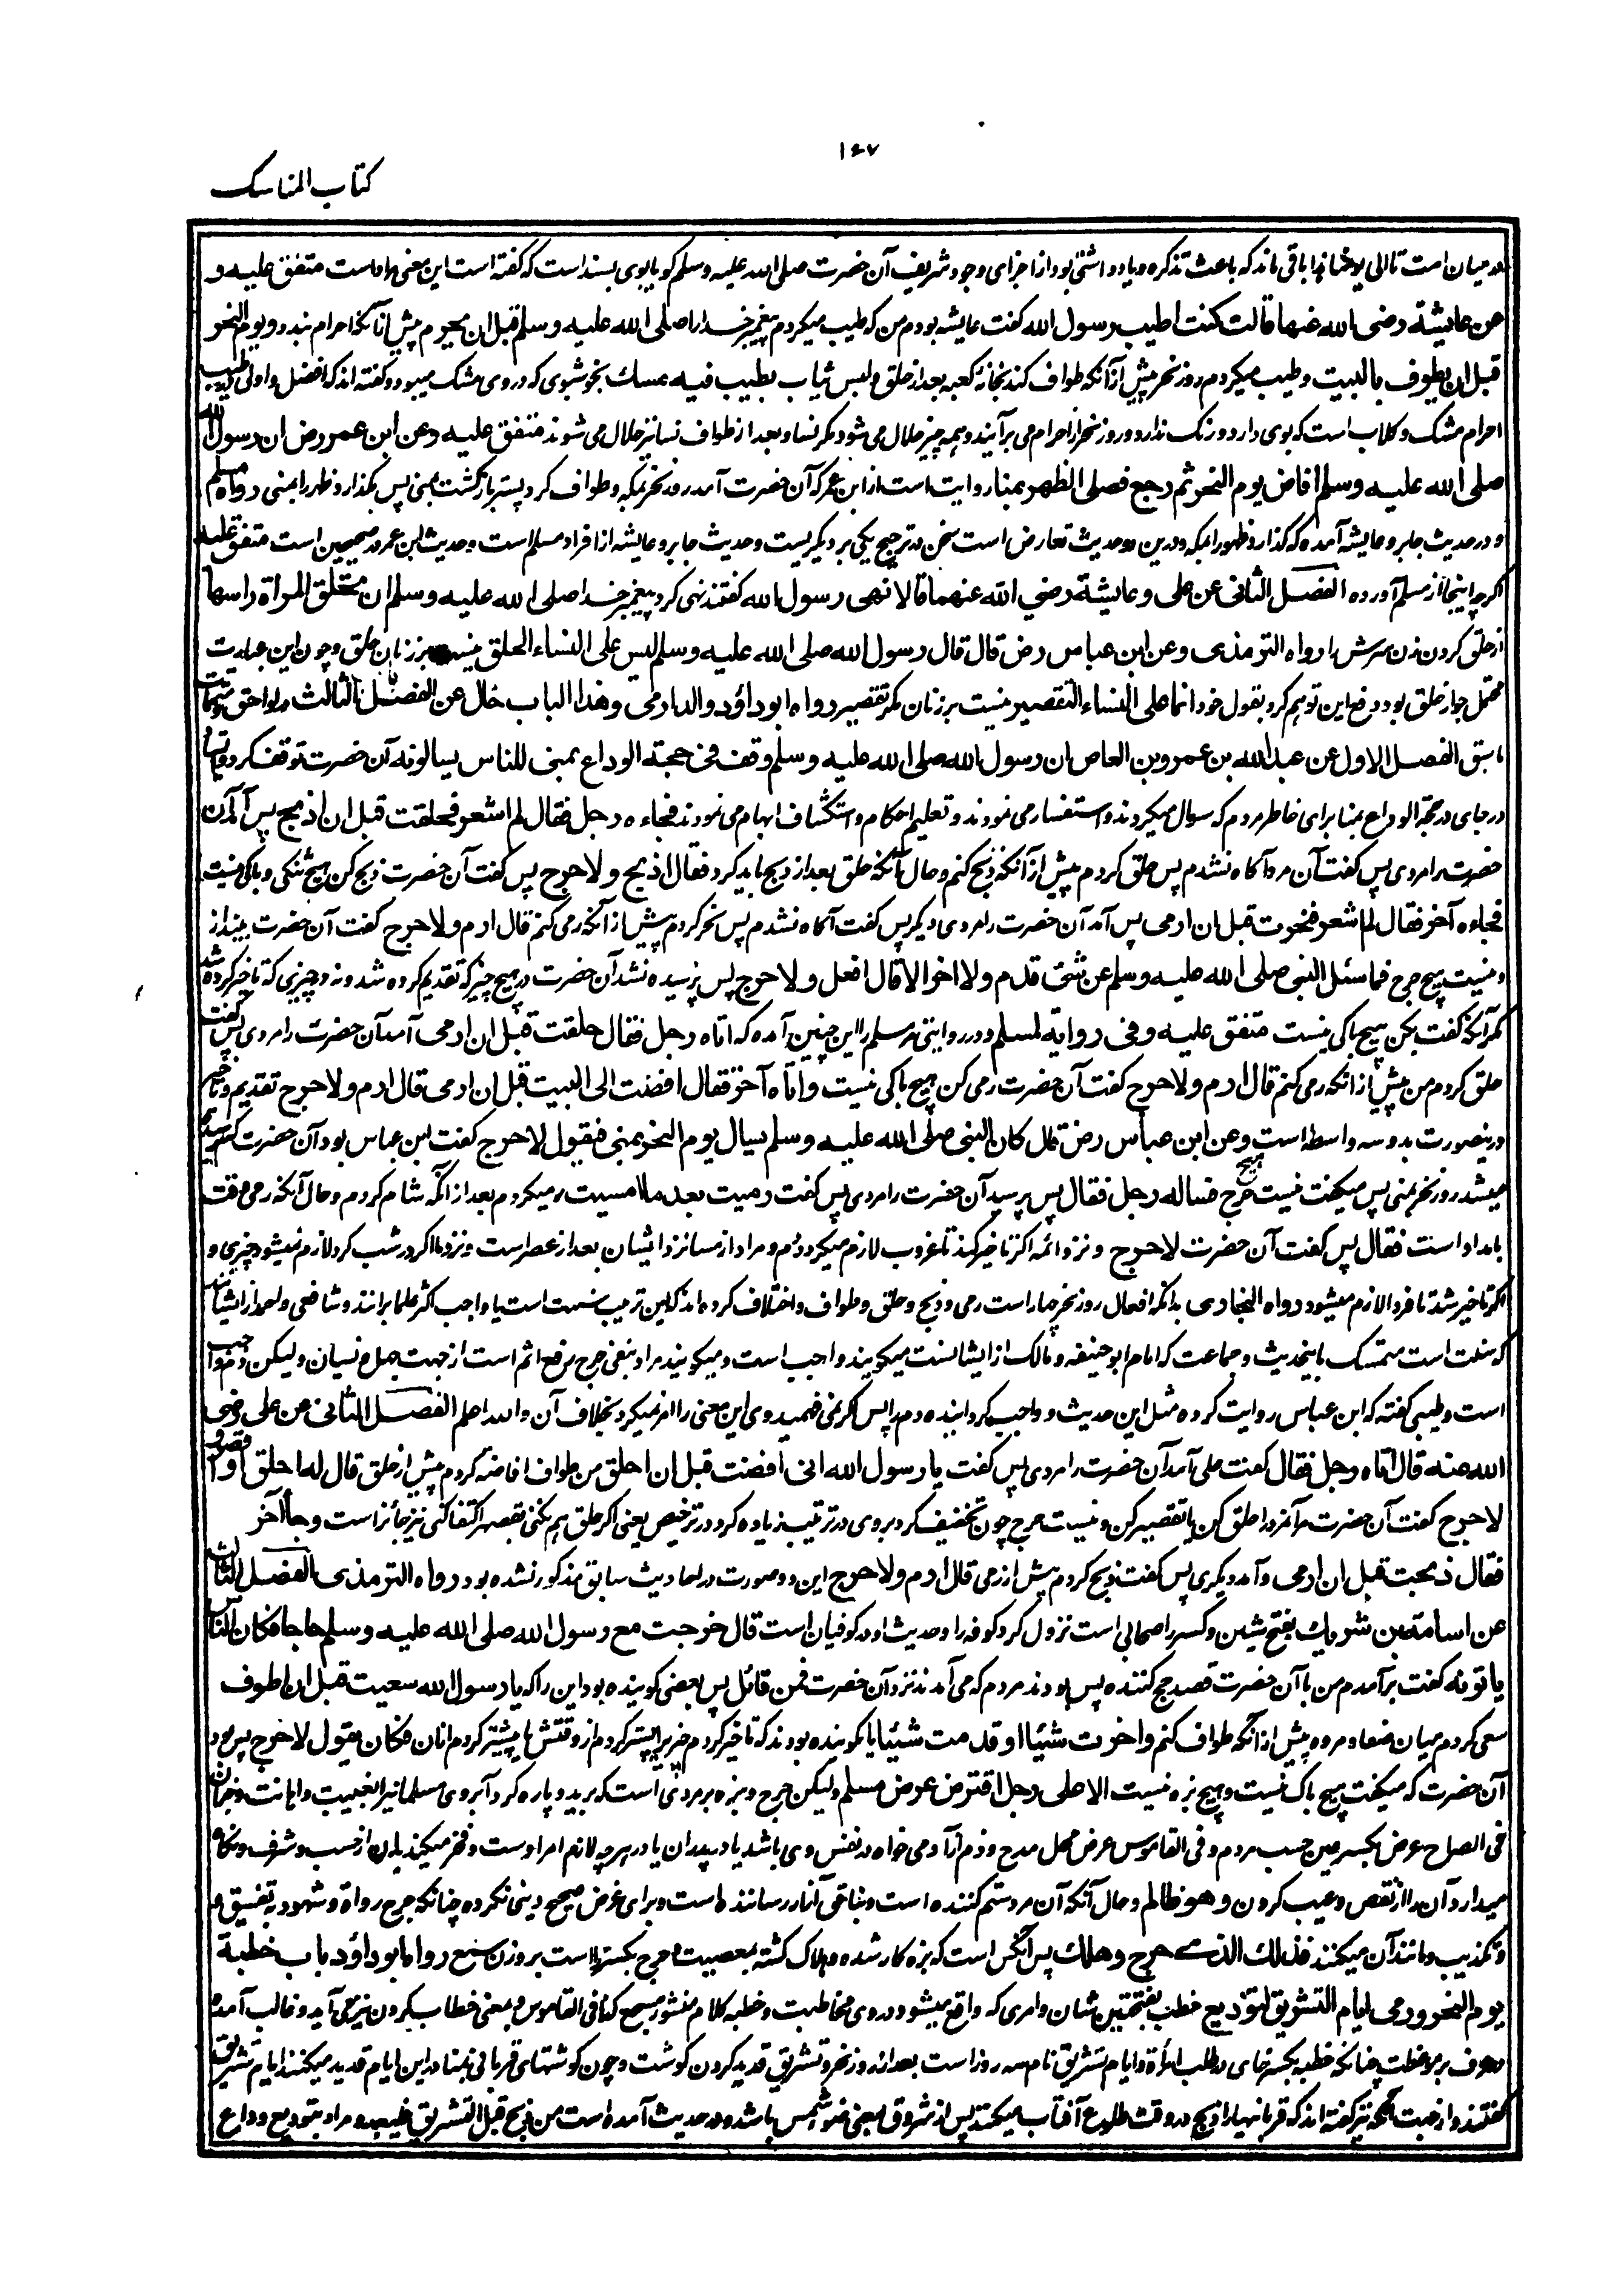 ۱۶۷
کتاب المناسک
در میان امت تا الی یومنا هذا باقی ماند که باعث تذکره و یادداشتی بود از اجزای وجود شریف آن حضرت صلی الله علیه وسلم کو یا بوی بسند است که گفته است این معنی متفق علیه و
عن عایشة رضی الله عنها قالت کنت اطیب رسول الله گفت عایشه بودم من که طیب میکردم پیغمبر خدا را صلی الله علیه وسلم قبل ان یحرم پیش از آنکه احرام بندد و یوم النحر
قبل ان یطوف بالبیت و طیب میکردم روز نحر پیش از آنکه طواف کند بخانه کعبه بعد از حلق و لبس ثیاب بطیب فیه مسک بخوشبوی که در وی مشک میبود و گفته اند که افضل و اولی طیب
احرام مشک و گلاب است که بوی دارد و رنگ ندارد و روز نحر از احرام می برآیند و همه چیز حلال می شود مگر نسا و بعد از طواف نسا نیز حلال می شوند متفق علیه وعن ابن عمر رض ان رسول الله
صلی الله علیه وسلم افاض یوم النحر ثم رجع فصلی الظهر بمنا روایت است از ابن عمر که آن حضرت آمد روز نحر بمکه و طواف کرد پستر بازگشت بمنی پس بگذارد ظهر را بمنی رواه مسلم
و در حدیث جابر و عایشه آمده که گذارد ظهر را بمکه و درین دو حدیث تعارض است سخن در ترجیح یکی بر دیگریست و حدیث جابر و عایشه از افراد مسلم است و حدیث ابن عمر در صحیحین است متفق علیه
اگرچه اینجا از مسلم آورده الفصل الثانی عن علی و عایشة رضی الله عنهما قالا نهی رسول الله گفتند نهی کرد پیغمبر خدا صلی الله علیه وسلم ان تحلق المراة راسها
از حلق کردن زن سرش را رواه الترمذی وعن ابن عباس رض قال قال رسول الله صلی الله علیه وسلم لیس علی النساء الحلق نیست بر زنان حلق و چون این عبارت
محتمل جواز حلق بود و رفع این توهم کرد بقول خود انما علی النساء التقصیر نیست بر زنان مگر تقصیر رواه ابو داؤد والدارمی وهذا الباب خال عن الفصل الثالث در لواحق و متممات
ما سبق الفصل الاول عن عبد الله بن عمرو بن العاص ان رسول الله صلی الله علیه وسلم وقف فی حجة الوداع بمنی للناس یسالونه آن حضرت توقف کرد
در جای در حجة الوداع بمنا برای خاطر مردم که سوال میکردند و استفسار می نمودند و تعلیم احکام و استکشاف ابهام می نمودند فجاءه رجل فقال لم اشعر فحلقت قبل ان اذبح پس آمد آن
حضرت را مردی پس گفت آن مرد آگاه نشدم پس حلق کردم پیش از آنکه ذبح کنم و حال آنکه حلق بعد از ذبح باید کرد فقال اذبح ولا حرج پس گفت آن حضرت ذبح کن هیچ تنگی و باکی نیست
فجاءه آخر فقال لم اشعر فنحرت قبل ان ارمی پس آمد آن حضرت را مردی دیگر پس گفت آگاه نشدم پس نحر کردم پیش از آنکه رمی کنم قال ارم ولا حرج گفت آن حضرت بینداز
و نیست هیچ حرج فما سئل النبی صلی الله علیه وسلم عن شئ قدم ولا اخر الا قال افعل ولا حرج پس پرسیده نشد آن حضرت در هیچ چیز که تقدیم کرده شد و نه در چیزی که تاخیر کرده شد
مگر آنکه گفت بکن هیچ باکی نیست متفق علیه وفی روایة لمسلم و در روایتی مر مسلم را این چنین آمده که اتاه رجل فقال حلقت قبل ان ارمی آمد آن حضرت را مردی پس گفت
حلق کردم من پیش از آنکه رمی کنم قال ارم ولا حرج گفت آن حضرت رمی کن هیچ باکی نیست واتاه آخر فقال افضت الی البیت قبل ان ارمی قال ارم ولا حرج تقدیم و تاخیر
درینصورت بدو سه واسطه است وعن ابن عباس رض قال کان النبی صلی الله علیه وسلم یسال یوم النحر بمنی فیقول لا حرج گفت ابن عباس بود آن حضرت که پرسیده
میشد روز نحر بمنی پس میگفت نیست هیچ حرج فساله رجل فقال پس پرسید آن حضرت را مردی پس گفت رمیت بعد ما امسیت رمی کردم بعد از آنکه شام کردم و حال آنکه رمی وقت
بامداد است فقال پس گفت آن حضرت لا حرج و نزد ائمه اگر تاخیر کند تا غروب لازم میگردد دم و مراد از مسا نزد ایشان بعد از عصر است و نزد ما اگر در شب کرد لازم نمیشود چیزی و
اگر تاخیر شد تا فردا لازم میشود رواه البخاری بدانکه افعال روز نحر چهار است رمی و ذبح و حلق و طواف و اختلاف کرده اند که این ترتیب سنت است یا واجب اکثر علما برانند و شافعی و احمد از ایشانند
که سنت است متمسک باینحدیث و جماعت که امام ابو حنیفه و مالک از ایشانست میگویند واجب است و میگویند مراد بنفی حرج رفع اثم است از جهت جهل و نسیان و لیکن دم واجب
است و طیبی گفته که ابن عباس روایت کرده مثل این حدیث و واجب گردانیده دم را پس اگر نمی فهمید وی این معنی را امر نمیکرد بخلاف آن والله اعلم الفصل الثانی عن علی رضی
الله عنه قال اتاه رجل فقال گفت علی آمد آن حضرت را مردی پس گفت یا رسول الله انی افضت قبل ان احلق من طواف افاضه کردم پیش از حلق قال له احلق او قصر و
لا حرج گفت آن حضرت مر آنمرد را حلق کن یا تقصیر کن و نیست حرج چون تخفیف کرد بر وی در ترتیب زیاده کرد در ترخیص یعنی اگر حلق هم نکنی بقصر اکتفا کنی نیز جائز است وجاء آخر
فقال ذبحت قبل ان ارمی و آمد دیگری پس گفت ذبح کردم پیش از رمی قال ارم ولا حرج این دو صورت در احادیث سابق مذکور نشده بود رواه الترمذی الفصل الثالث
عن اسامة بن شریک بفتح شین و کسر را صحابی است نزول کرد کوفه را و حدیث او در کوفیان است قال خرجت مع رسول الله صلی الله علیه وسلم حاجا فکان الناس
یاتونه گفت برآمدم من با آن حضرت قصد حج کننده پس بودند مردم که می آمدند نزد آن حضرت فمن قائل پس بعضی گوینده بود این را که یا رسول الله سعیت قبل ان اطوف
سعی کردم میان صفا و مروه پیش از آنکه طواف کنم واخرت شیئا او قدمت شیئا یا گوینده بودند که تاخیر کردم چیزی را پستر کردم از وقتش یا پیشتر کردم از آن فکان یقول لا حرج پس بود
آن حضرت که میگفت هیچ باک نیست و هیچ بزه نیست الا علی رجل اقترض عرض مسلم ولیکن حرج و بزه بر مردی است که برید و پاره کرد آبروی مسلمانی را بغیبت و اهانت و جز آن
فی الصراح عرض بکسر عین حسب مردم و فی القاموس عرض محل مدح و ذم از آدمی خواه در نفس وی باشد یا در پدران یا در هر چه لازم امر اوست و فخر میکند بدان از حسب و شرف و نگاه
میدارد آن را از نقص و عیب کردن وهو ظالم و حال آنکه آن مرد ستم کننده است و بناحق آزار رساننده است و برای غرض صحیح دینی نکرده چنانکه جرح رواة و شهود به تفسیق و
و تکذیب و مانند آن میکنند فذلک الذی حرج وهلک پس آنکس است که بزه کار شده و هلاک گشته بمعصیت و حرج بکسر را است بر وزن سمع رواه ابو داؤد باب خطبة
یوم النحر ورمی ایام التشریق والتودیع خطب بفتحتین شان و امری که واقع میشود در وی مخاطبت و خطبه کلام منثور مسجع کذا فی القاموس و بمعنی خطاب کردن نیز می آید و غالب آمده
در عرف بر موعظت چنانکه خطبه بکسر خای در طلب امرأة و ایام تشریق نام سه روز است بعد از روز نحر و تشریق قدید کردن گوشت و چون گوشتهای قربانی بمنا در این ایام قدید میکنند ایام تشریق
گفتند و از جهت آنکه نیز گفته اند که قربانیها را ذبح در وقت طلوع آفتاب میکنند پس از شروق بمعنی ضوء شمس باشد و در حدیث آمده است من ذبح قبل التشریق فلیعد و مراد بتودیع وداع